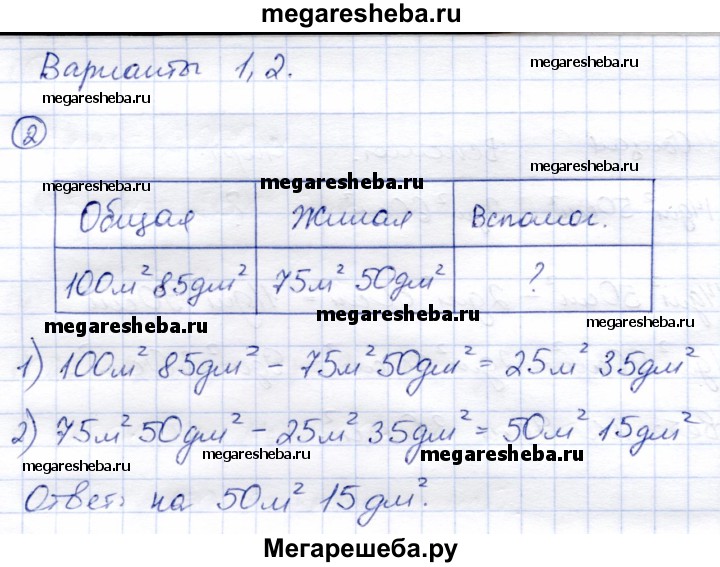 megaresheba.ru
Варианты 1, 2.
megaresheba.ru
megaresheba.ru
2
megaresheba.ru
megaresheba.ru
megaresheba.ru
Общая Жилая Вспомог.
100м² 85дм² 75м² 50дм² ?
megaresheba.ru
megaresheba.ru
megaresheba.ru
1) 100м² 85дм² - 75м² 50дм² = 25м² 35дм²
2) 75м² 50дм² - 25м² 35дм² = 50м² 15дм²
megaresheba.ru
megaresheba.ru
megaresheba.ru
Ответ: на 50м² 15дм².
megaresheba.ru
Мегарешеба.ру